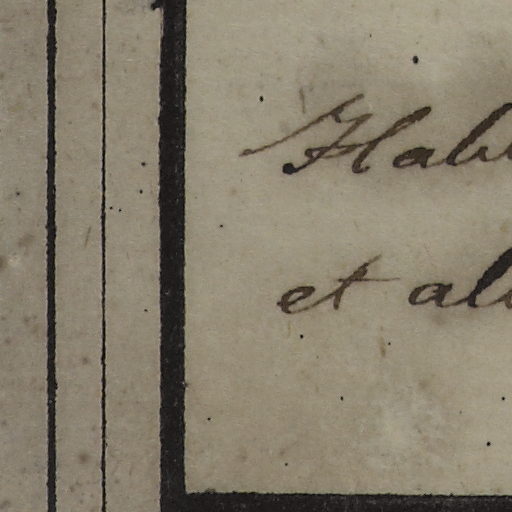 Hab
et al